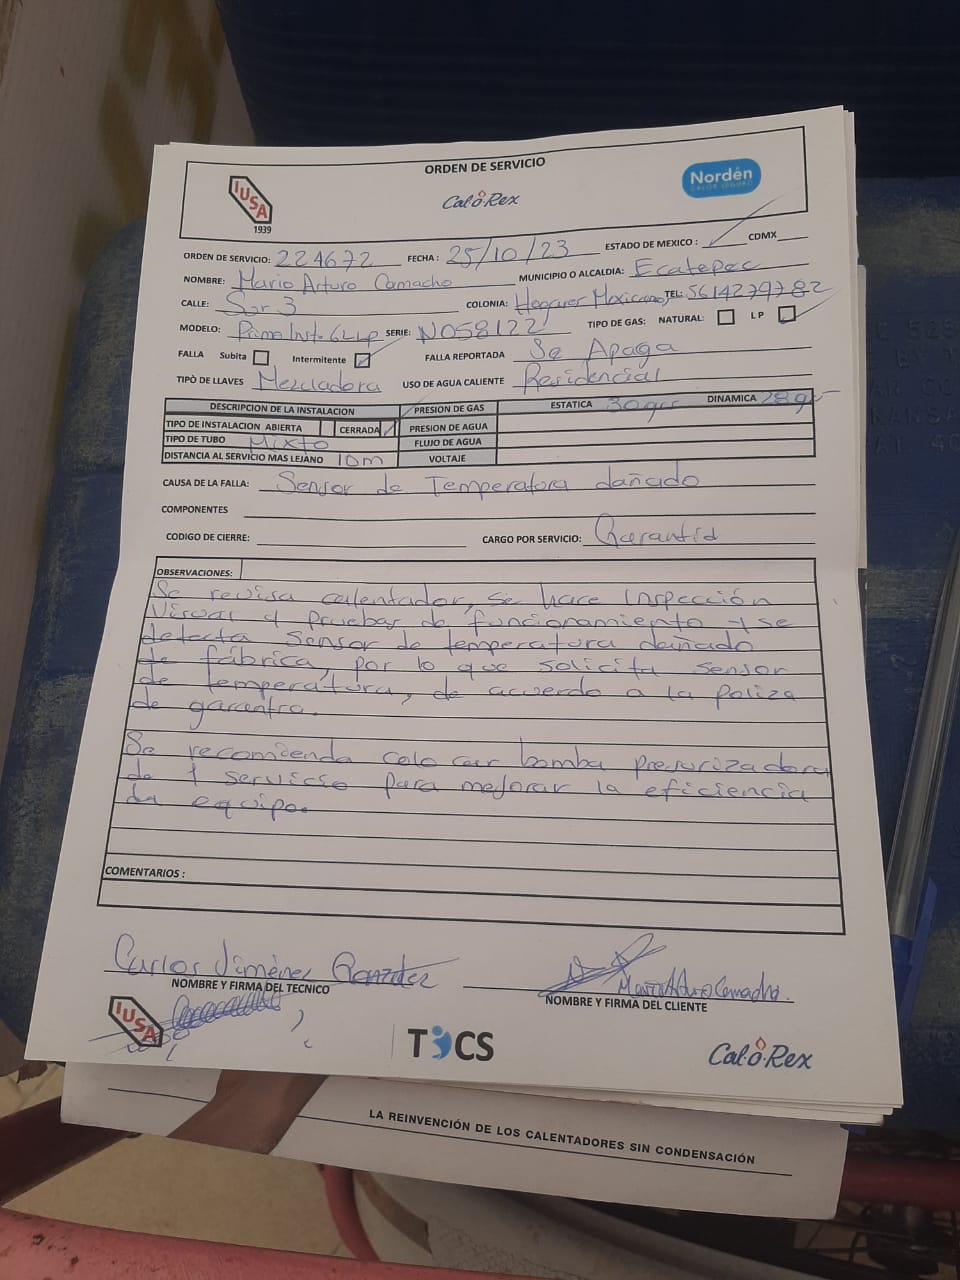 ORDEN DE SERVICIO
IUSA
1939
Cal-o-Rex
Nordén
CALOR SEGURO
ORDEN DE SERVICIO: 224672 FECHA: 25/10/23 ESTADO DE MEXICO: CDMX
NOMBRE: Mario Arturo Camacho MUNICIPIO O ALCALDIA: Ecatepec
CALLE: Sor 3 COLONIA: Hogares Mexicanos TEL: 5614279782
MODELO: Prima Inst. 6L LP SERIE: N058122 TIPO DE GAS: NATURAL: LP
FALLA Subita Intermitente FALLA REPORTADA Se Apaga
TIPÒ DE LLAVES Mezcladora USO DE AGUA CALIENTE Residencial
DESCRIPCION DE LA INSTALACION PRESION DE GAS ESTATICA 30gr DINAMICA 28gr
TIPO DE INSTALACION ABIERTA CERRADA PRESION DE AGUA
TIPO DE TUBO Mixto FLUJO DE AGUA
DISTANCIA AL SERVICIO MAS LEJANO 10m VOLTAJE
CAUSA DE LA FALLA: Sensor de Temperatura dañado
COMPONENTES
CODIGO DE CIERRE: CARGO POR SERVICIO: Garantia
OBSERVACIONES:
Se revisa calentador, se hace Inspección
Visual y pruebas de funcionamiento y se
detecta sensor de temperatura dañado
de fábrica, por lo que solicita sensor
de temperatura, de acuerdo a la poliza
de garantia.
Se recomienda colocar bomba presurizadora
de 1 servicio para mejorar la eficiencia
de equipo.
COMENTARIOS :
Carlos Jiménez González
NOMBRE Y FIRMA DEL TECNICO
Mario Arturo Camacho.
NOMBRE Y FIRMA DEL CLIENTE
IUSA
TICS
Cal-o-Rex
LA REINVENCIÓN DE LOS CALENTADORES SIN CONDENSACIÓN